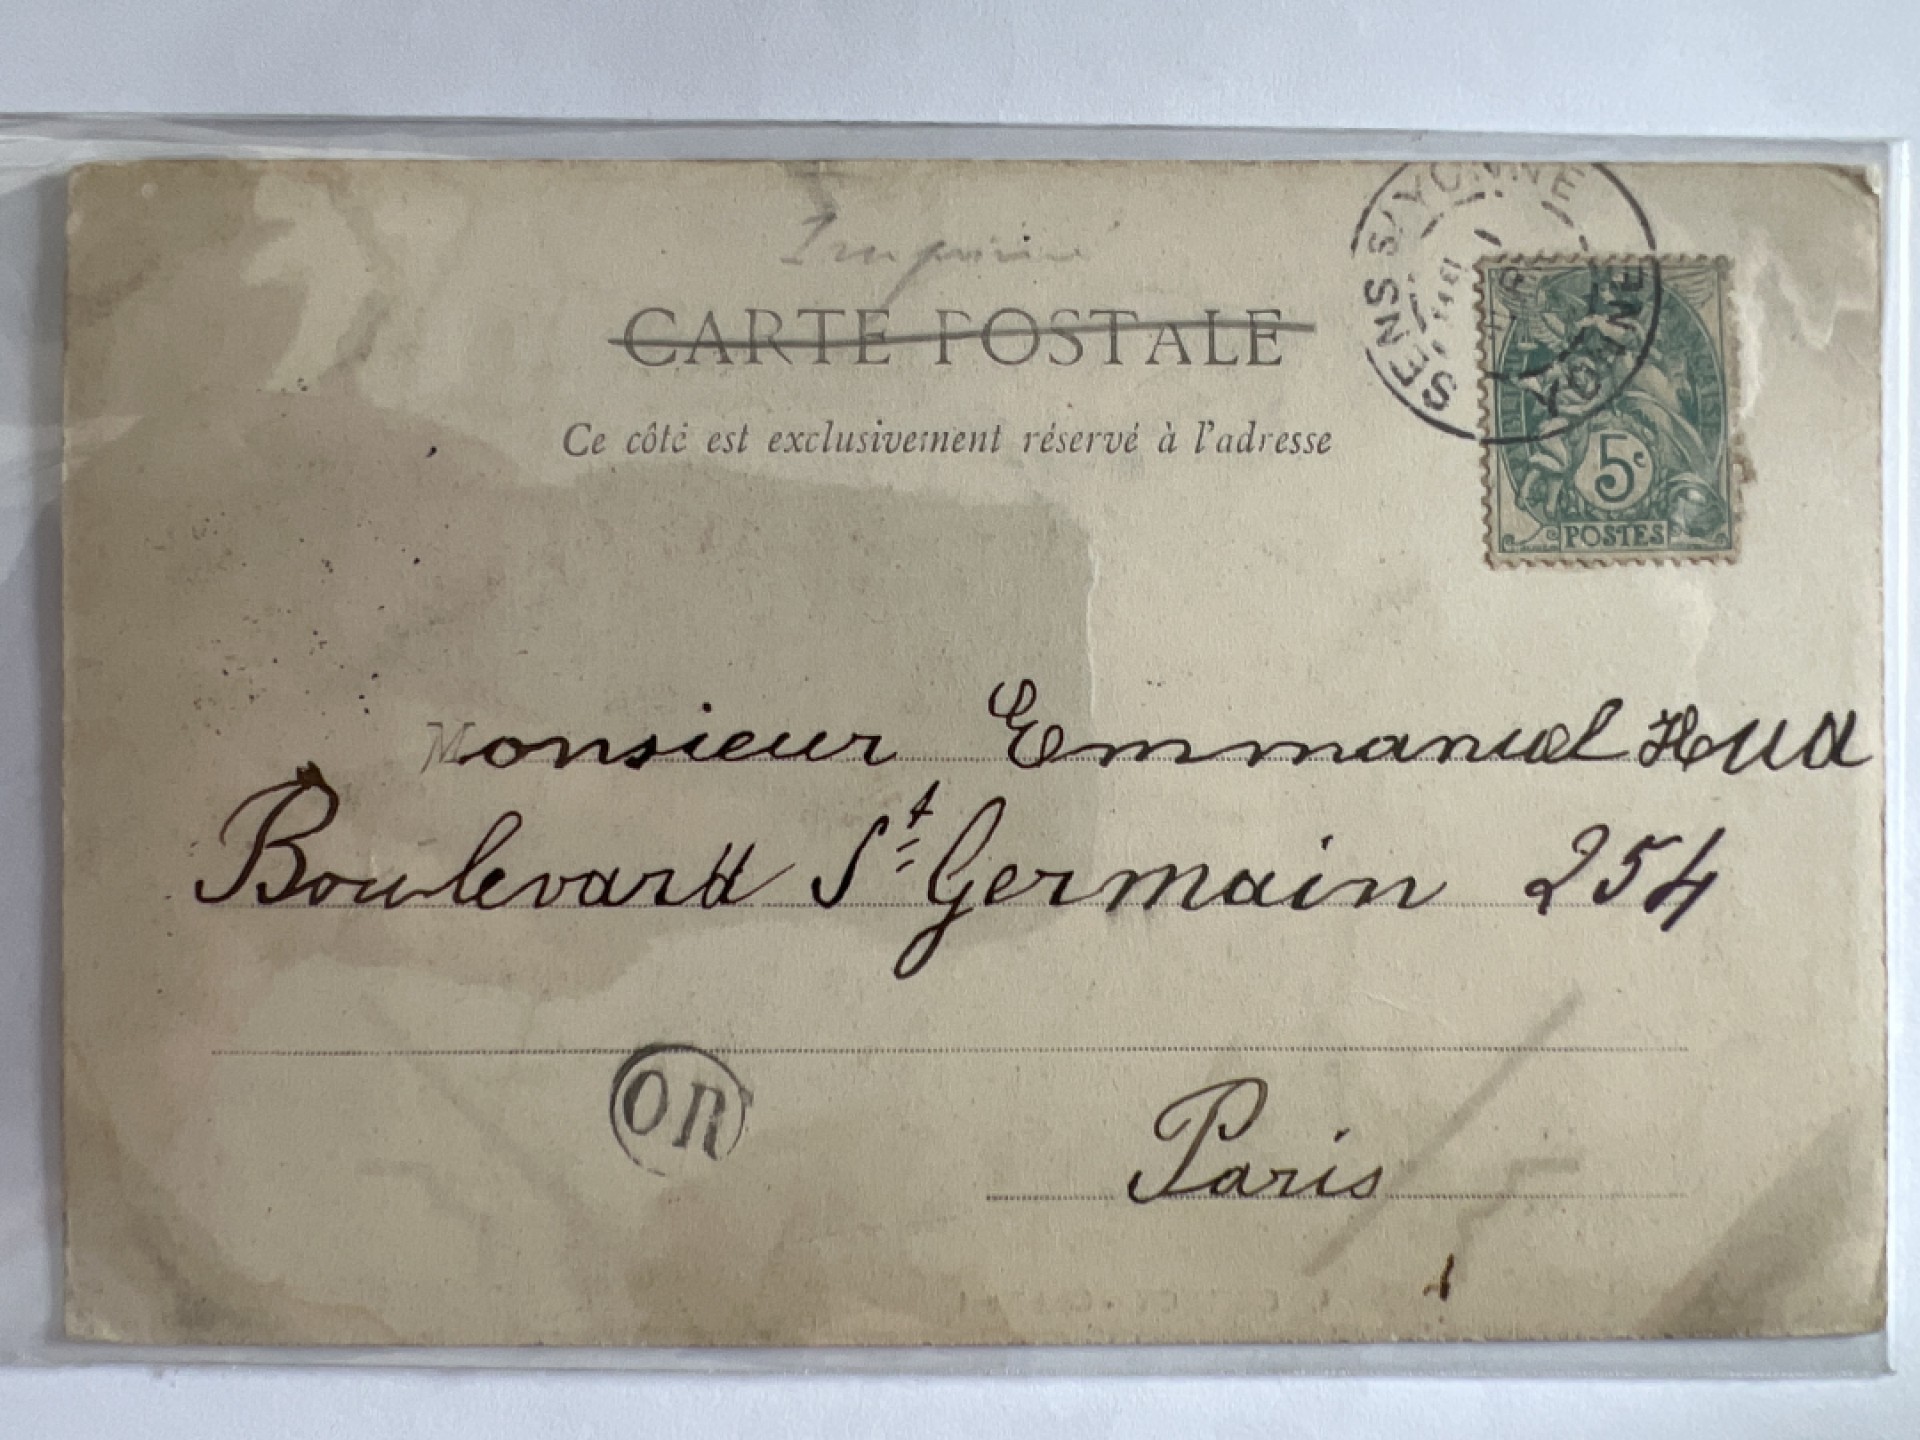 Imprimé
CARTE POSTALE
Ce côté est exclusivement réservé à l'adresse
SENS S/YONNE
YONNE
5c
POSTES
Monsieur Emmanuel Hua
Boulevard St Germain 254
OR
Paris